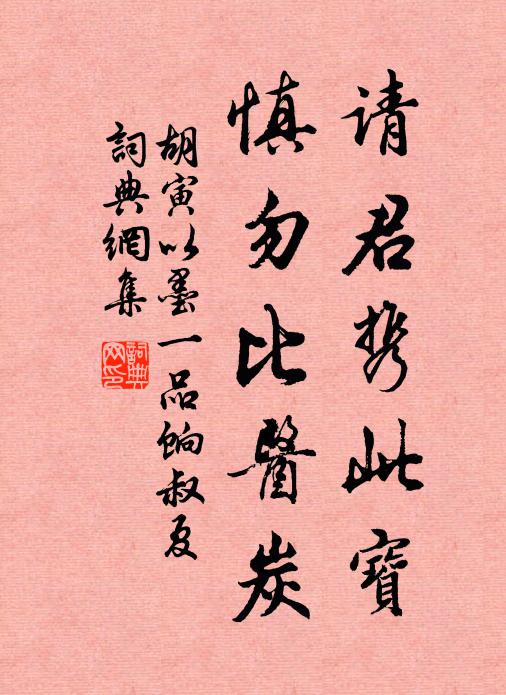 请君携此寶
慎勿比醫炭
胡寅以墨一品餉叔夏
詞典網集
詞典網印